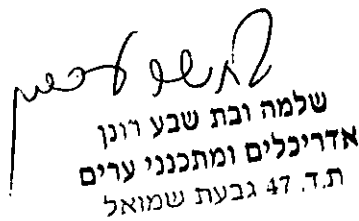 שלמה ובת שבע רונן
אדריכלים ומתכנני ערים
ת.ד. 47 גבעת שמואל